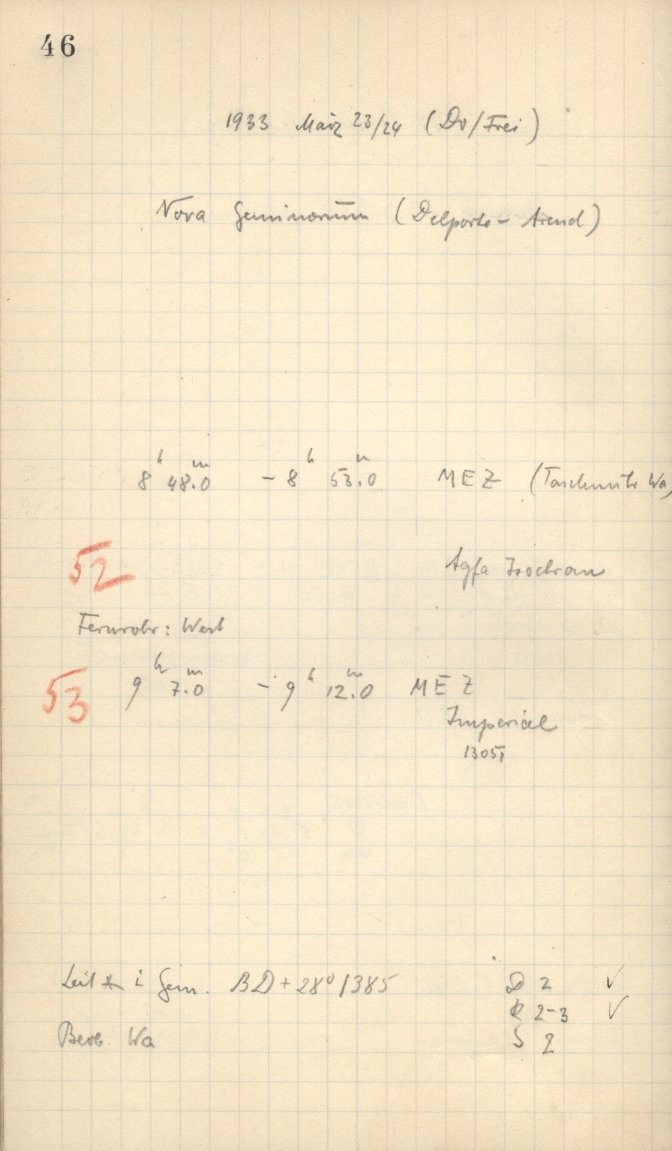 46
1933 März 23/24 (Do/Frei)
Nova Geminorum (Delporte - Arend)
8h 48m.0 - 8h 53m.0 MEZ (Taschenuhr Wa)
52 Agfa Isochrom
Fernrohr: West
53 9h 7m.0 - 9h 12m.0 MEZ
Imperial
1305
Leit * i Gem. BD+28° 1385 D 2 ✓
R 2-3 ✓
Beob. Wa S 2